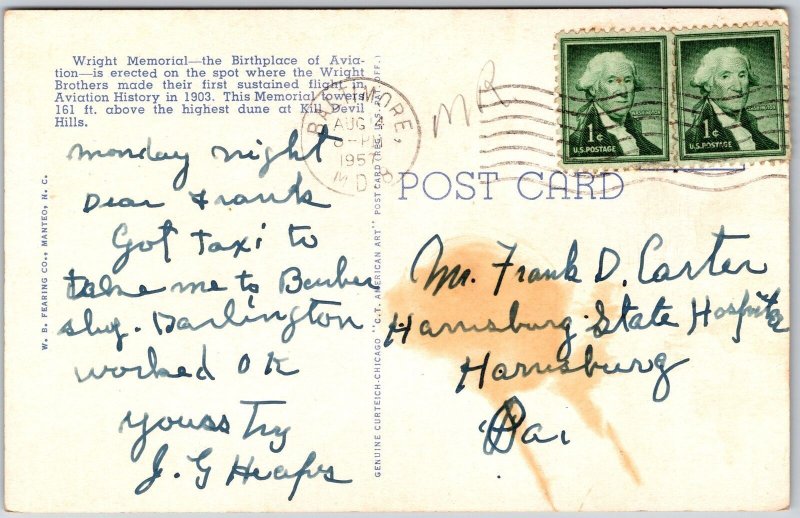 Wright Memorial—the Birthplace of Avia-
tion—is erected on the spot where the Wright
Brothers made their first sustained flight in
Aviation History in 1903. This Memorial towers
161 ft. above the highest dune at Kill Devil
Hills.
BALTIMORE,
AUG 12
8-PM
195
MD.
MR
WASHINGTON
1¢
U.S. POSTAGE
WASHINGTON
1¢
U.S. POSTAGE
POST CARD
Monday night
Dear Frank
Got taxi to
take me to Barber
shop. Darlington
worked OK
Yours Try
J. G Heaps
Mr. Frank D. Carter
Harrisburg State Hospital
Harrisburg
Pa.
W. B. FEARING CO., MANTEO, N. C.
GENUINE CURTEICH-CHICAGO "C.T. AMERICAN ART" POST CARD (REG. U.S. PAT. OFF.)